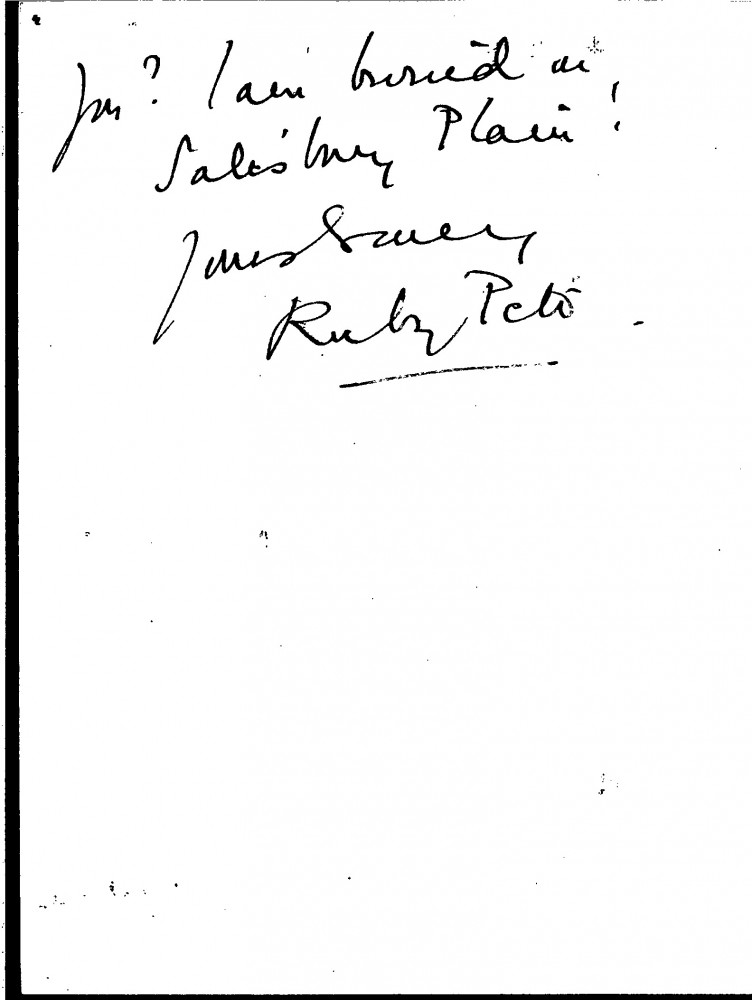 you? I am buried on
Salisbury Plain!
Yours Sincerely
Ruby Peto.